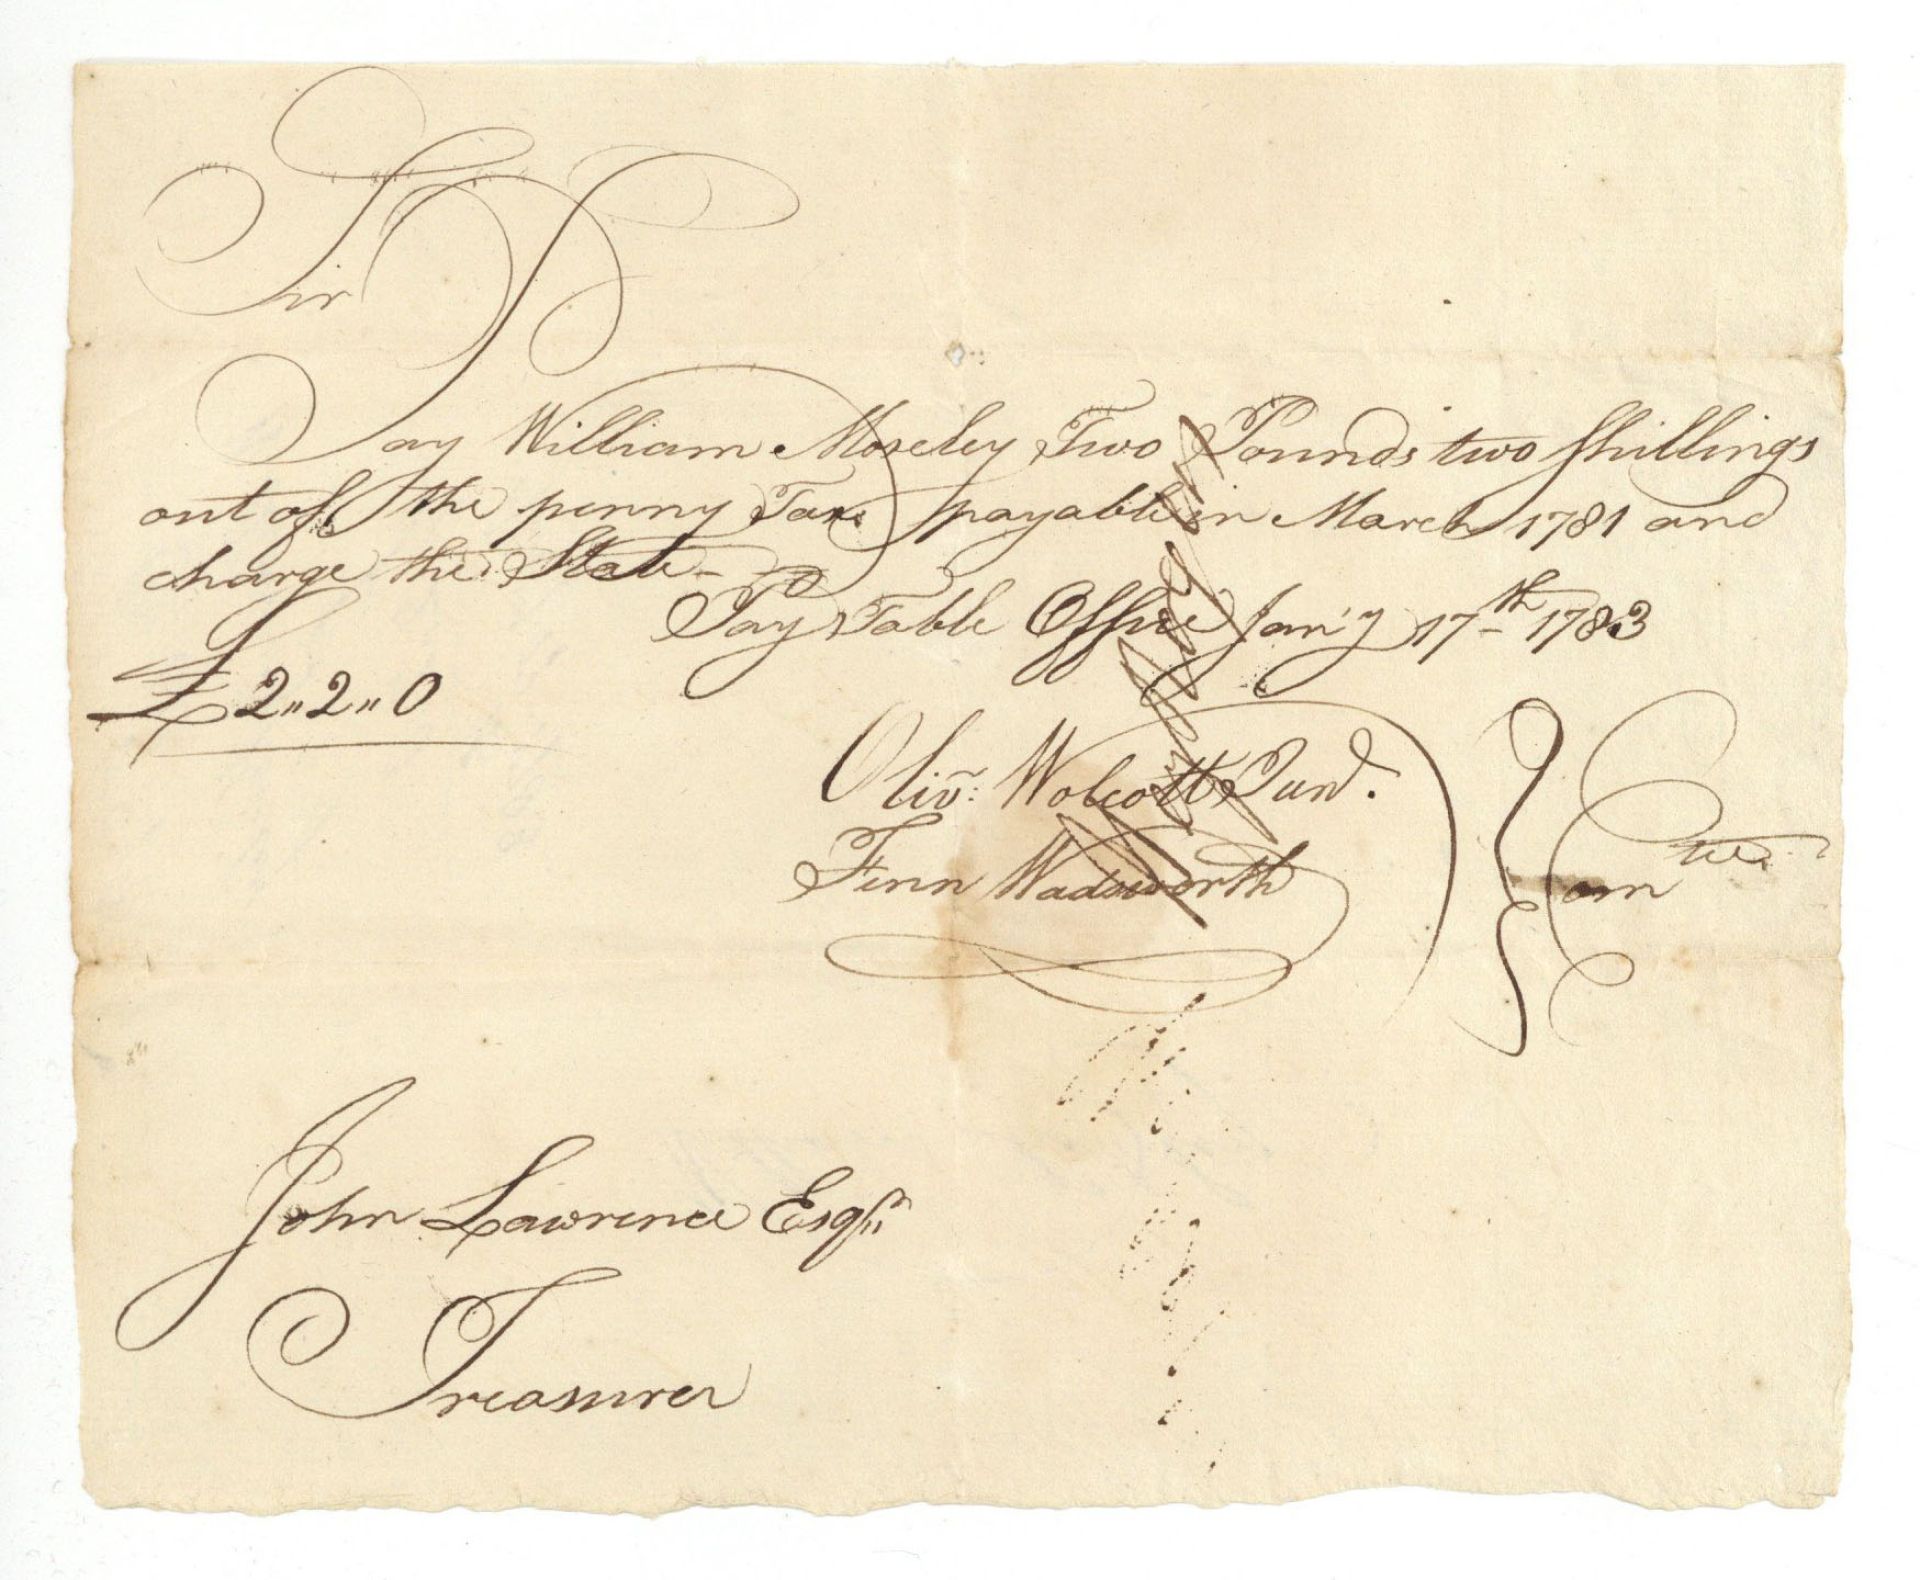 Sir
Pay William Moseley Two Pounds two Shillings
out of the penny Tax payable in March 1781 and
charge the State -
Pay Table Office Jan'y 17th 1783
£ 2 " 2 " 0
Oliv: Wolcott Junr.
Fenn Wadsworth
Comtee
John Lawrence Esqr
Treasurer